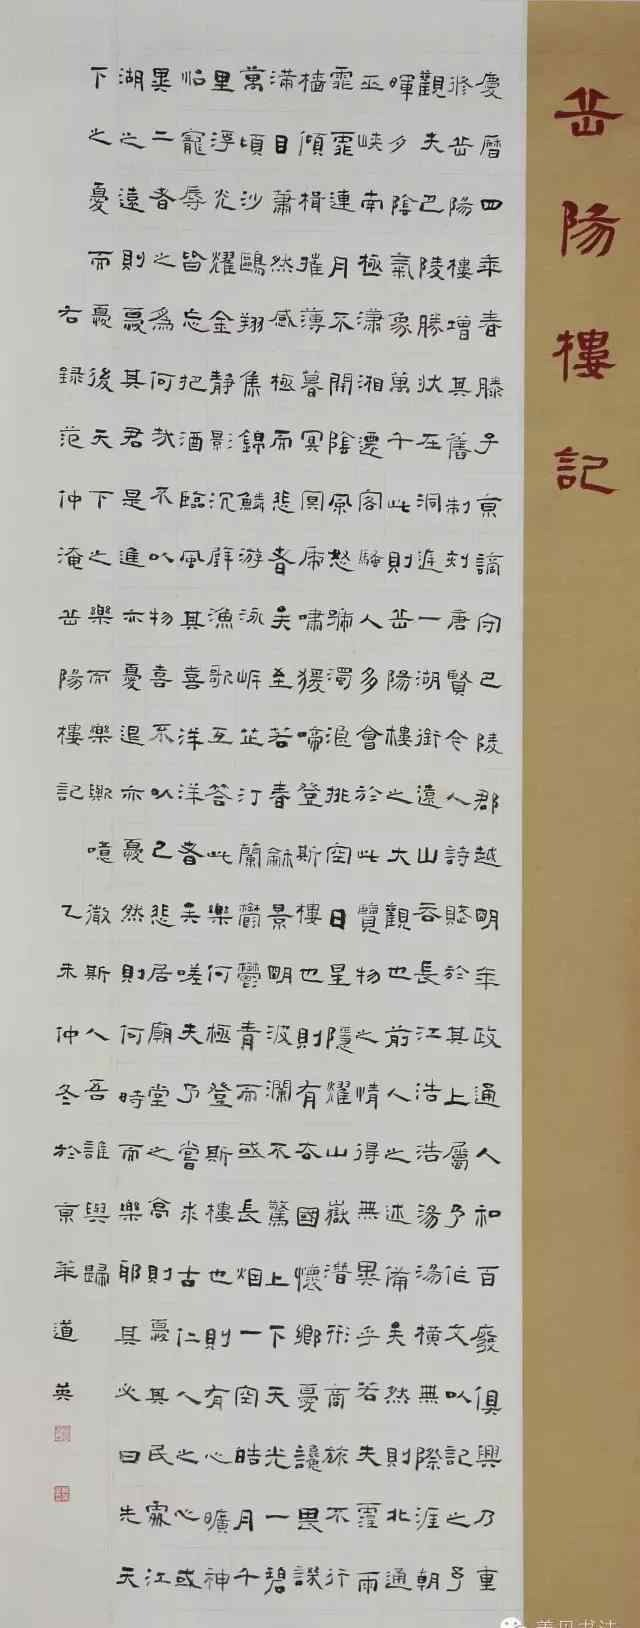 岳陽樓記
慶曆四年春滕子京謫守巴陵郡越明年政通人和百廢俱興乃重
修岳陽樓增其舊制刻唐賢今人詩賦於其上屬予作文以記之予
觀夫巴陵勝狀在洞庭一湖銜遠山吞長江浩浩湯湯橫無際涯朝
暉夕陰氣象萬千此則岳陽樓之大觀也前人之述備矣然則北通
巫峽南極瀟湘遷客騷人多會於此覽物之情得無異乎若夫霪雨
霏霏連月不開陰風怒號濁浪排空日星隱耀山嶽潛形商旅不行
檣傾楫摧薄暮冥冥虎嘯猨啼登斯樓也則有去國懷鄉憂讒畏譏
滿目蕭然感極而悲者矣至若春龢景明波瀾不驚上下天光一碧
萬頃沙鷗翔集錦鱗游泳岸芷汀蘭鬱鬱青而或長烟一空皓月千
里浮光耀金靜影沉璧漁歌互答此樂何極登斯樓也則有心曠神
怡寵辱皆忘把酒臨風其喜洋洋者矣嗟夫予嘗求古仁人之心或
異二者之為何哉不以物喜不以己悲居廟堂之高則憂其民處江
湖之遠則憂其君是進亦憂退亦憂然則何時而樂耶其必曰先天
下之憂而憂後天下之樂而樂歟噫微斯人吾誰與歸
右錄范仲淹岳陽樓記 乙未仲冬於京華道英